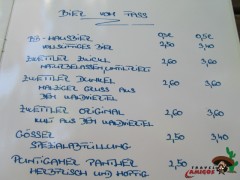 BIER VOM FASS
BB-HAUSBIER 0,3l 0,5l
VOLLMUNDIGES BIER 2,50 3,40
ZWETTLER ZWICKL 2,60 3,60
NATURBELASSEN, UNFILTRIERT
ZWETTLER DUNKEL 2,60 3,60
MALZIGER GRUSS AUS
DEM WALDVIERTEL
ZWETTLER ORIGINAL 2,60 3,60
KULT AUS DEM WALDVIERTEL
GÖSSER 2,50 3,40
SPEZIALABFÜLLUNG
PUNTIGAMER PANTHER 2,50
HERBFRISCH UND HOPFIG
TRAVEL
AMIGOS